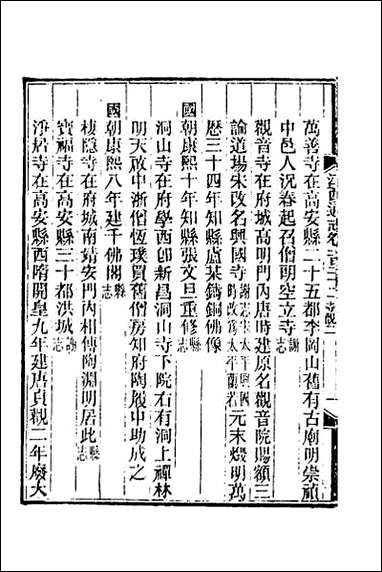 萬善寺在高安縣二十五都李岡山舊有古廟明崇禎
中邑人況卷起召僧朗空立寺謝志
觀音寺在府城高明門內唐時建原名觀音院賜額三
論道場宋改名興國寺 元末燬明萬
歷三十四年知縣盧某鑄銅佛像
國朝康熙十年知縣張文旦重修縣志
洞山寺在府學西卽新昌洞山寺下院右有洞上禪林
明天啟中浙僧恆璞買舊僧房知府陶履中助成之
國朝康熙八年建千佛閣縣志
棲隱寺在府城南靖安門內相傳陶淵明居此縣志
寶福寺在高安縣三十都洪城謝志
淨居寺在高安縣西隋開皇九年建唐貞觀二年廢大